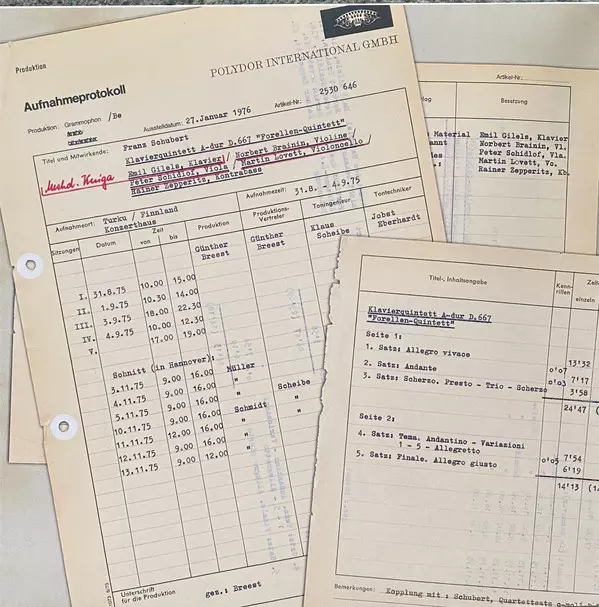 Produktion
POLYDOR INTERNATIONAL GMBH
Aufnahmeprotokoll
Produktion: Grammophon /Be
Ausstelldatum: 27.Januar 1976
Artikel-Nr.: 2530 646
Titel und Mitwirkende: Franz Schubert
Klavierquintett A-dur D.667 "Forellen-Quintett"
Emil Gilels, Klavier / Norbert Brainin, Violine /
Peter Schidlof, Viola / Martin Lovett, Violoncello /
Rainer Zepperitz, Kontrabass
Aufnahmeort: Turku / Finnland
Konzerthaus
Aufnahmezeit: 31.8. - 4.9.75
Sitzungen Datum Zeit von bis Produktion Produktions-Vertreter Toningenieur Tontechniker
Günther Breest Günther Breest Klaus Scheibe Jobst Eberhardt
I. 31.8.75 10.00 15.00
II. 1.9.75 10.30 14.00
III. 3.9.75 18.00 22.30
IV. 4.9.75 10.00 12.30
V. 17.00 19.00
Schnitt (in Hannover):
3.11.75 9.00 16.00 Müller
4.11.75 9.00 16.00 "
5.11.75 9.00 16.00 " Scheibe
10.11.75 9.00 16.00 Schmidt "
11.11.75 12.00 16.00 "
12.11.75 9.00 16.00 "
13.11.75 9.00 12.00 "
Unterschrift
für die Produktion gez.: Breest
Artikel-Nr.:
Besetzung
Material Emil Gilels, Klavier
Norbert Brainin, Vl.
Peter Schidlof, Vla.
Martin Lovett, Vc.
Rainer Zepperitz, Kb.
Titel-, Inhaltsangabe
Kenn-rillen
einzeln
Klavierquintett A-dur D.667
"Forellen-Quintett"
Seite 1:
1. Satz: Allegro vivace 13'32
2. Satz: Andante 0'07 7'17
3. Satz: Scherzo. Presto - Trio - Scherzo 0'03 3'58
24'47
Seite 2:
4. Satz: Tema. Andantino - Variazioni
1 - 5 - Allegretto 7'54
5. Satz: Finale. Allegro giusto 0'05 6'19
14'13
Bemerkungen: Kopplung mit : Schubert, Quartettsatz c-moll